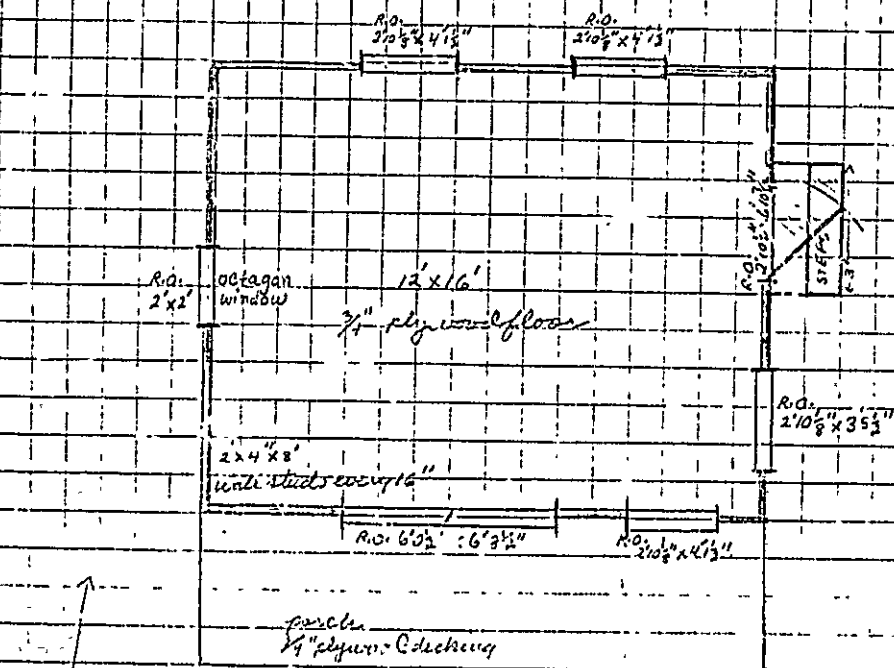 R.O.
2'10⅛" x 4'1½"
R.O.
2'10⅛" x 4'1½"
R.O.
2'10½" x 6'10½"
STEPS
3'
R.O.
2'x2'
octagan
window
12'x16'
3/4" plywood floor
R.O.
2'10⅛" x 3'5½"
2x4"x8'
wall studs every 16"
R.O. 6'0½" : 6'3½"
R.O.
2'10⅛" x 4'1½"
porch
3/4" plywood decking